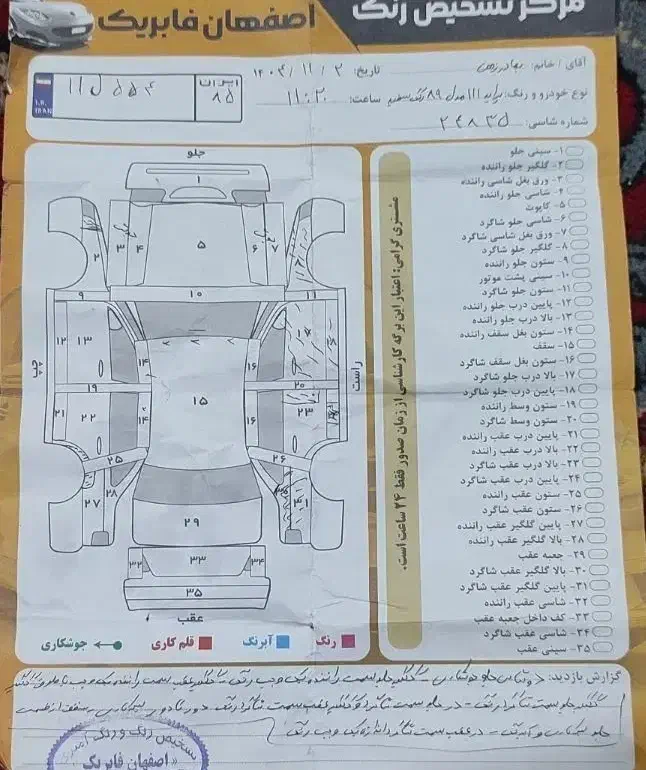 مرکز تشخیص رنگ
اصفهان فابریک
آقای / خانم: بهادر زمن
تاریخ: ۱۴۰۴/۱۱/۲
نوع خودرو و رنگ: پراید ۱۱۱ مدل ۸۹ رنگ سفید ساعت: ۱۱:۲۰
شماره شاسی:
ایران ۸۵
۵۵۴ ل ۱۱
I.R. IRAN
۱- سینی جلو
۲- گلگیر جلو راننده
۳- ورق بغل شاسی راننده
۴- شاسی جلو راننده
۵- کاپوت
۶- شاسی جلو شاگرد
۷- ورق بغل شاسی شاگرد
۸- گلگیر جلو شاگرد
۹- ستون جلو راننده
۱۰- سینی پشت موتور
۱۱- ستون جلو شاگرد
۱۲- پایین درب جلو راننده
۱۳- بالا درب جلو راننده
۱۴- ستون بغل سقف راننده
۱۵- سقف
۱۶- ستون بغل سقف شاگرد
۱۷- بالا درب جلو شاگرد
۱۸- پایین درب جلو شاگرد
۱۹- ستون وسط راننده
۲۰- ستون وسط شاگرد
۲۱- پایین درب عقب راننده
۲۲- بالا درب عقب راننده
۲۳- بالا درب عقب شاگرد
۲۴- پایین درب عقب شاگرد
۲۵- ستون عقب راننده
۲۶- ستون عقب شاگرد
۲۷- پایین گلگیر عقب راننده
۲۸- بالا گلگیر عقب راننده
۲۹- جعبه عقب
۳۰- بالا گلگیر عقب شاگرد
۳۱- پایین گلگیر عقب شاگرد
۳۲- شاسی عقب راننده
۳۳- کف داخل جعبه عقب
۳۴- شاسی عقب شاگرد
۳۵- سینی عقب
مشتری گرامی: اعتبار این برگه کارشناسی از زمان صدور فقط ۲۴ ساعت است.
جلو
۱
۲ ۳ ۴ ۵ ۶ ۷
۹ ۱۰ ۱۱
۱۲ ۱۳ ۱۴ ۱۶
چپ
راست
۱۹ ۲۰
۲۱ ۲۲ ۱۴ ۱۵ ۱۶ ۲۳
۲۵ ۲۶
۲۷ ۲۸ ۲۹
۳۲ ۳۳ ۳۴
۳۵
عقب
رنگ
آبرنگ
قلم کاری
جوشکاری
گزارش بازدید: دو شاسی جلو جوشکاری - گلگیر جلو سمت راننده یک وجب رنگ - گلگیر عقب سمت راننده یک وجب
گلگیر جلو سمت شاگرد رنگ - درب جلو سمت شاگرد و گلگیر عقب سمت شاگرد رنگ
درب عقب سمت شاگرد اندازه یک وجب رنگ
تشخیص رنگ
اصفهان فابریک